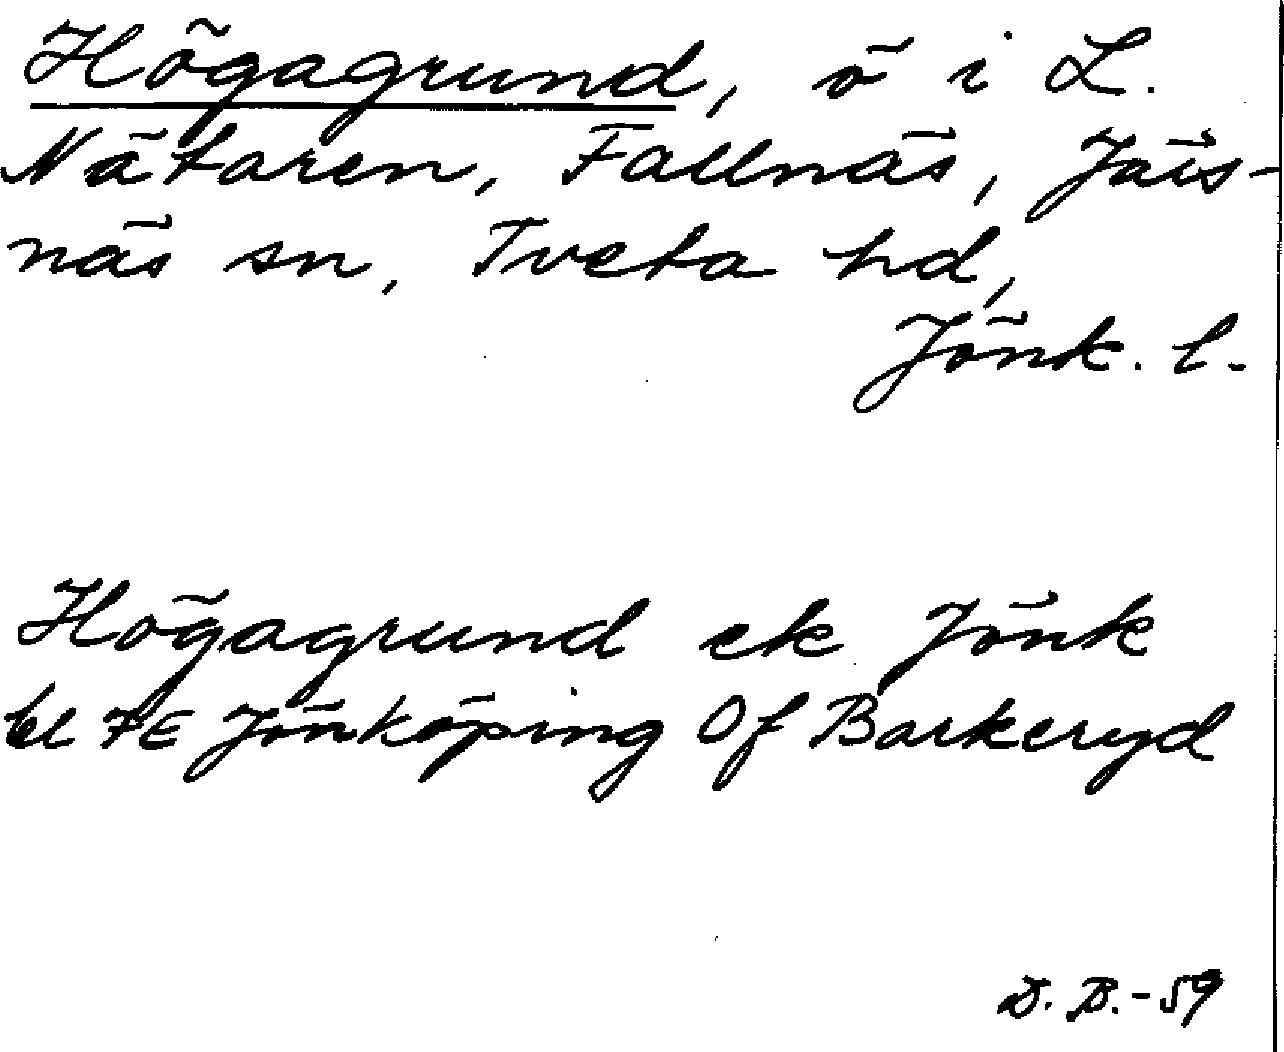 Högagrund, ö i L.
Nätaren, Fallnäs, Järs-
näs sn, Tveta hd,
Jönk. l.
Högagrund ek Jönk
bl 7E Jönköping Of Barkeryd
D.B.-59